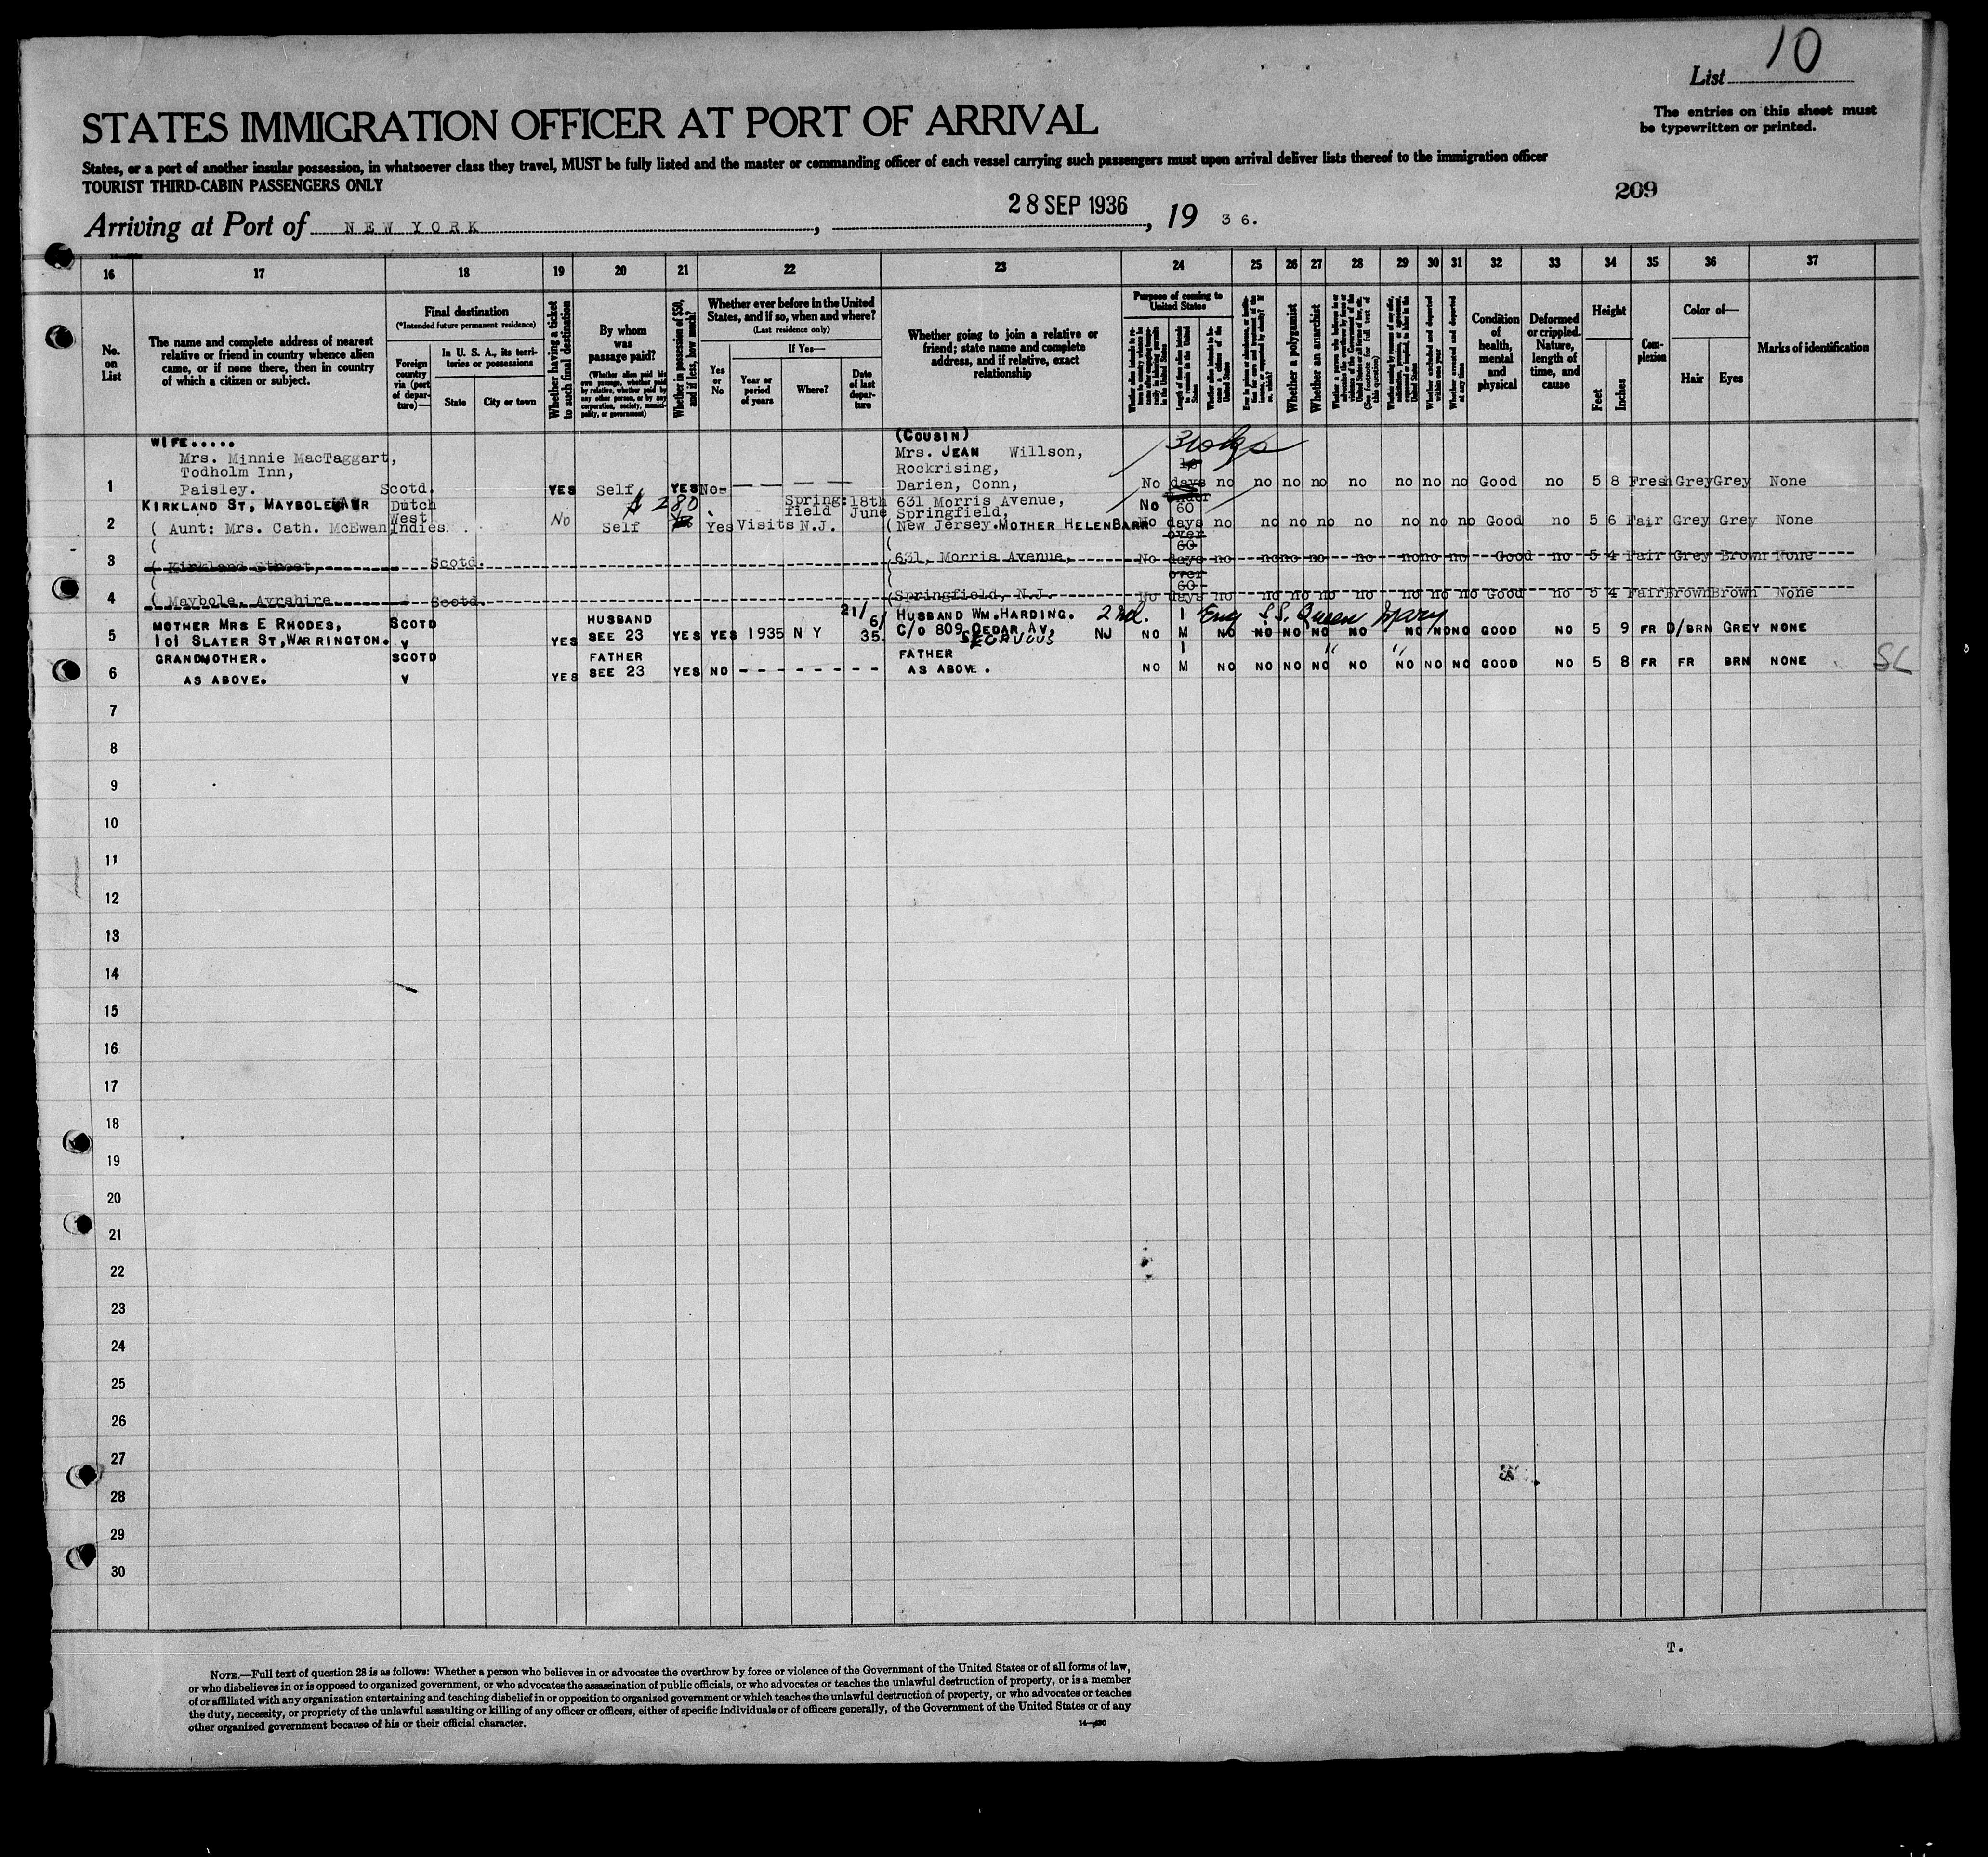 10
List
STATES IMMIGRATION OFFICER AT PORT OF ARRIVAL
The entries on this sheet must
be typewritten or printed.
States, or a port of another insular possession, in whatsoever class they travel, MUST be fully listed and the master or commanding officer of each vessel carrying such passengers must upon arrival deliver lists thereof to the immigration officer
TOURIST THIRD-CABIN PASSENGERS ONLY
209
Arriving at Port of NEW YORK, 28 SEP 1936, 19 36.
16 17 18 19 20 21 22 23 24 25 26 27 28 29 30 31 32 33 34 35 36 37
No. on List
The name and complete address of nearest
relative or friend in country whence alien
came, or if none there, then in country
of which a citizen or subject.
Final destination
(*Intended future permanent residence)
Foreign country via (port of departure)—
In U. S. A., its territories or possessions
State
City or town
Whether having a ticket to such final destination
By whom was passage paid?
(Whether alien paid his own passage, whether paid by relative, whether paid by any other person, or by any corporation, society, municipality, or government)
Whether in possession of $50, and if less, how much?
Whether ever before in the United
States, and if so, when and where?
(Last residence only)
Yes or No
If Yes—
Year or period of years
Where?
Date of last departure
Whether going to join a relative or
friend; state name and complete
address, and if relative, exact
relationship
Purpose of coming to United States
Whether a polygamist
Whether an anarchist
(See footnote for full text of this question)
Whether excluded and deported within one year
Whether arrested and deported at any time
Condition of health, mental and physical
Deformed or crippled. Nature, length of time, and cause
Height
Feet
Inches
Complexion
Color of—
Hair
Eyes
Marks of identification
WIFE.....
Mrs. Minnie MacTaggart,
Todholm Inn,
(COUSIN)
Mrs. JEAN Willson,
Rockrising,
Darien, Conn,
1 Paisley. Scotd. YES Self YES No- — — — — No days no no no no no no no no Good no 5 8 Fresh Grey Grey None
KIRKLAND ST, MAYBOLE AYR Dutch West Indies $280 Springfield 18th June 631 Morris Avenue, Springfield, No 60
2 ( Aunt: Mrs. Cath. McEwan, No Self Yes Visits N.J. (New Jersey. MOTHER HELEN BARR No days no no no no no no no no Good no 5 6 Fair Grey Grey None
over
60
3 ( Kirkland Street, Scotd. 631, Morris Avenue, No days no no no no no no no no Good no 5 4 Fair Grey Brown None
over
60
4 ( Maybole, Ayrshire. Scotd. (Springfield, N.J. No days no no no no no no no no Good no 5 4 Fair Brown Brown None
MOTHER MRS E RHODES, SCOTD HUSBAND 21/6/ HUSBAND WM. HARDING. 2nd. I Eng S.S. Queen Mary
5 101 SLATER ST, WARRINGTON. V YES SEE 23 YES YES 1935 N Y 35. C/O 809 CEDAR AV. SECAUCUS NJ NO M NO NO NO NO NO NO NO NO GOOD NO 5 9 FR D/BRN GREY NONE
GRANDMOTHER. SCOTD FATHER FATHER I " "
6 AS ABOVE. V YES SEE 23 YES NO - - - - - - - AS ABOVE. NO M NO NO NO NO NO NO NO NO GOOD NO 5 8 FR FR BRN NONE SL
7
8
9
10
11
12
13
14
15
16
17
18
19
20
21
22
23
24
25
26
27
28
29
30
T.
NOTE.—Full text of question 28 is as follows: Whether a person who believes in or advocates the overthrow by force or violence of the Government of the United States or of all forms of law,
or who disbelieves in or is opposed to organized government, or who advocates the assassination of public officials, or who advocates or teaches the unlawful destruction of property, or is a member
of or affiliated with any organization entertaining and teaching disbelief in or opposition to organized government or which teaches the unlawful destruction of property, or who advocates or teaches
the duty, necessity, or propriety of the unlawful assaulting or killing of any officer or officers, either of specific individuals or of officers generally, of the Government of the United States or of any
other organized government because of his or their official character.